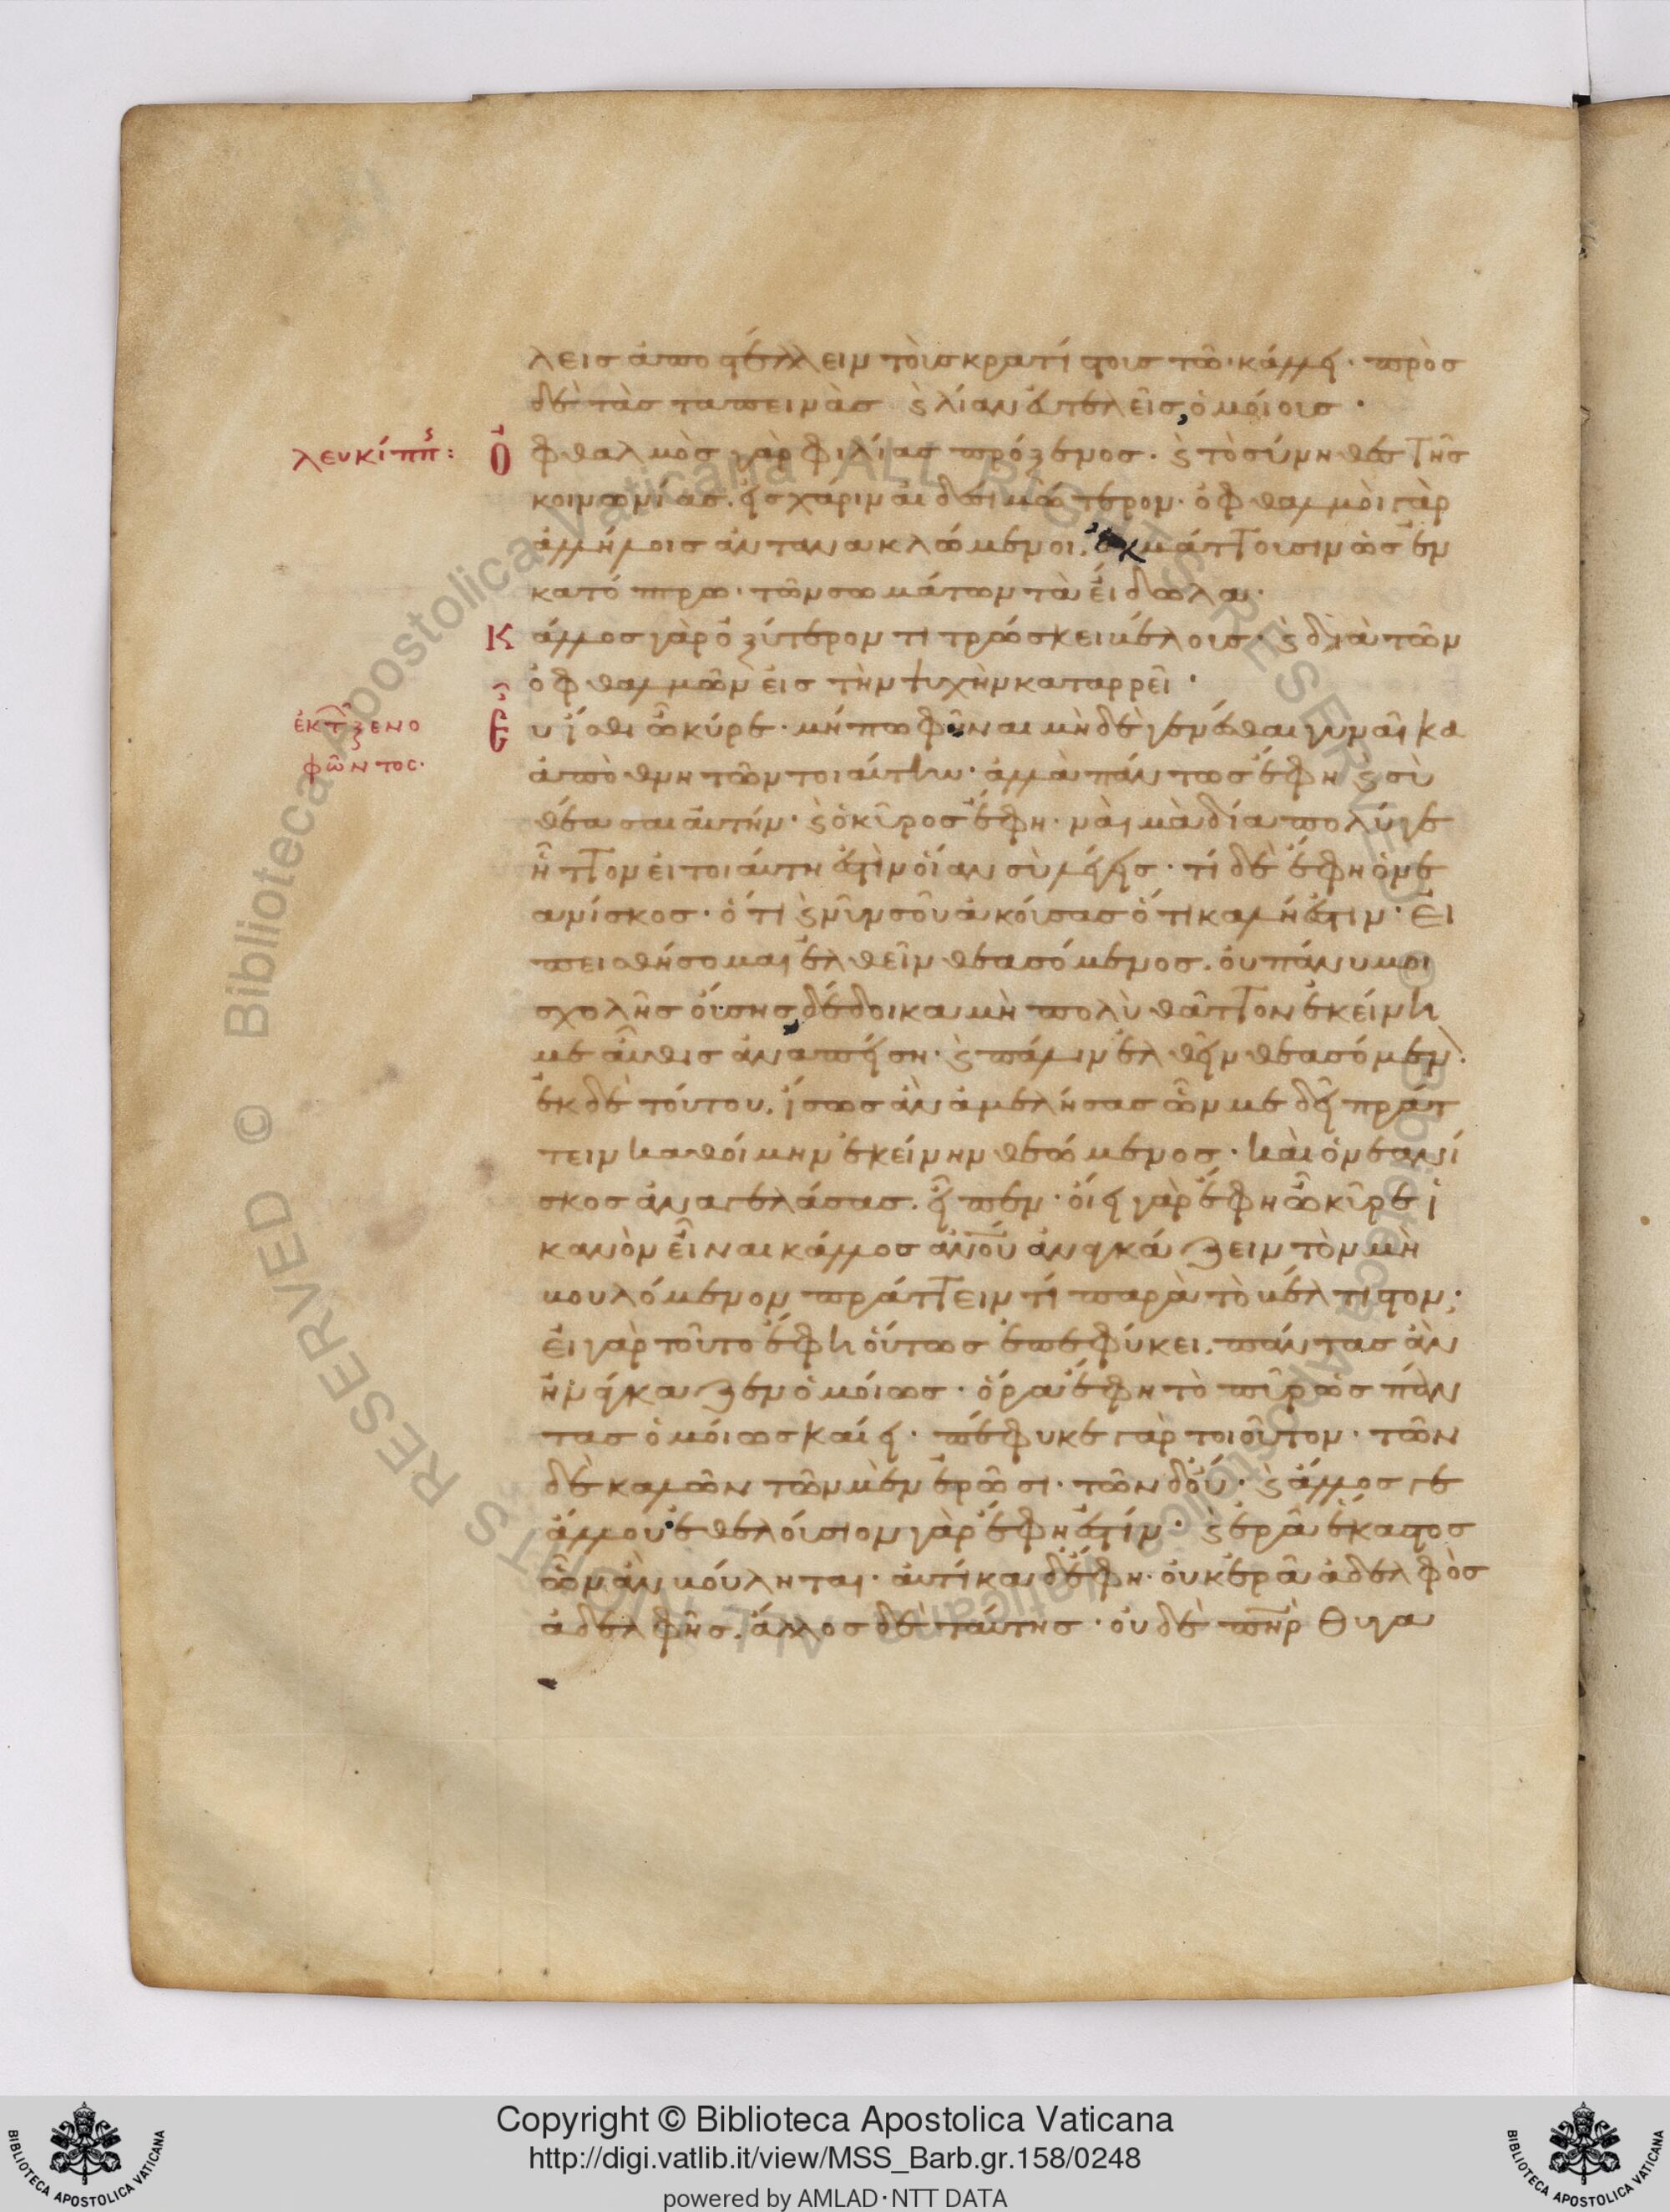 λεις ἀποστέλλειν τοῖς κρατίστοις τῶ κάλλει· πρὸς
δὲ τὰς ταπεινὰς ϛ λίαν ἀτελεῖς, ὁμοίοις·
λευκίππϛ: Ὀφθαλμὸς γὰρ φιλίας πρόξενος· ϛ τὸ σύνηθες τῆς
κοινωνίας, εἰς χάριν αἰδεσιμώτερον· ὀφθαλμοὶ γὰρ
ἀλλήλοις ἀντανακλώμενοι, ἐκμάττουσιν ὡς ἐν
κατόπτρω· τῶν σωμάτων τὰ εἴδωλα·
Κάλλος γὰρ ὀξύτερον τιτρώσκει βέλους· ϛ διὰ τῶν
ὀφθαλμῶν εἰς τὴν ψυχὴν καταρρεῖ·
ἐκτ ξενοφῶντος· Εὖ ἴσθι ὦ κύρε· μήπω φῦναι μὴ δὲ γενέσθαι γυναῖκα
ἀπὸ θνητῶν τοιαύτην· ἀλλὰ πάντως ἔφη ϛ σὺ
θέασαι αὐτήν· ϛ ὁ κῦρος ἔφη· ναὶ μὰ δία πολύ γε
ἧττον εἰ τοιαύτη ἐστὶν οἵαν σὺ λέγεις· τί δὲ ἔφη ὁ νε
ανίσκος· ὅτι ϛ νῦν σοῦ ἀκούσας ὅτι καλή ἐστιν· Εἰ
πεισθήσομαι ἐλθεῖν θεασόμενος, οὐ πάνυ μοι
σχολῆς οὔσης, δέδοικα μὴ πολὺ θᾶττον ἐκείνη
με αὖθις ἀναπείση· ϛ πάλιν ἐλθεῖν θεασόμεν\.
ἐκ δὲ τούτου, ἴσως ἂν ἀμελήσας ὧν με δεῖ πράτ
τειν καθοίμην ἐκείνην θεώμενος· καὶ ὁ νεανί
σκος ἀναγελάσας, εἶπεν· οἴει γὰρ ἔφη ὦ κῦρε ἱ
κανὸν εἶναι κάλλος ἀνοῦ ἀναγκάζειν τὸν μὴ
βουλόμενον πράττειν τί παρὰ τὸ βέλτιστον;
εἰ γὰρ τοῦτο ἔφη οὕτως ἐπεφύκει, πάντας ἂν
ἠνάγκαζεν ὁμοίως· ὁρᾶ ἔφη τὸ πῦρ ὡς πάν
τας ὁμοίως καίει· πέφυκε γὰρ τοιοῦτον· τῶν
δὲ καλῶν τῶν μὲν ἐρῶσι· τῶν δ' οὔ· ϛ ἄλλος γε
ἄλλου ἐθελούσιον γὰρ ἔφη ἐστίν· ϛ ἐρᾶ ἕκαστος
ὧν ἂν βούληται· αὐτίκα δ' ἔφη· οὐκ ἐρᾶ ἀδελφὸς
ἀδελφῆς, ἄλλος δὲ ταύτης· οὐδὲ πηρ θυγα
Copyright © Biblioteca Apostolica Vaticana
http://digi.vatlib.it/view/MSS_Barb.gr.158/0248
powered by AMLAD·NTT DATA